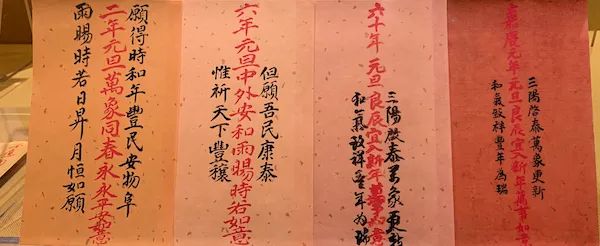 三陽啓泰萬象更新
嘉慶元年元旦良辰宜入新年萬事如
和氣致祥豐年為瑞
三陽啓泰萬象更新
六十年元旦良辰宜入新年萬事如意
和氣致祥豐年為瑞
但願吾民康泰
六年元旦中外安和雨暘時若如意
惟祈天下豐穰
願得時和年豐民安物阜
二年元旦萬象同春永永平安如意
雨暘時若日昇月恒如願